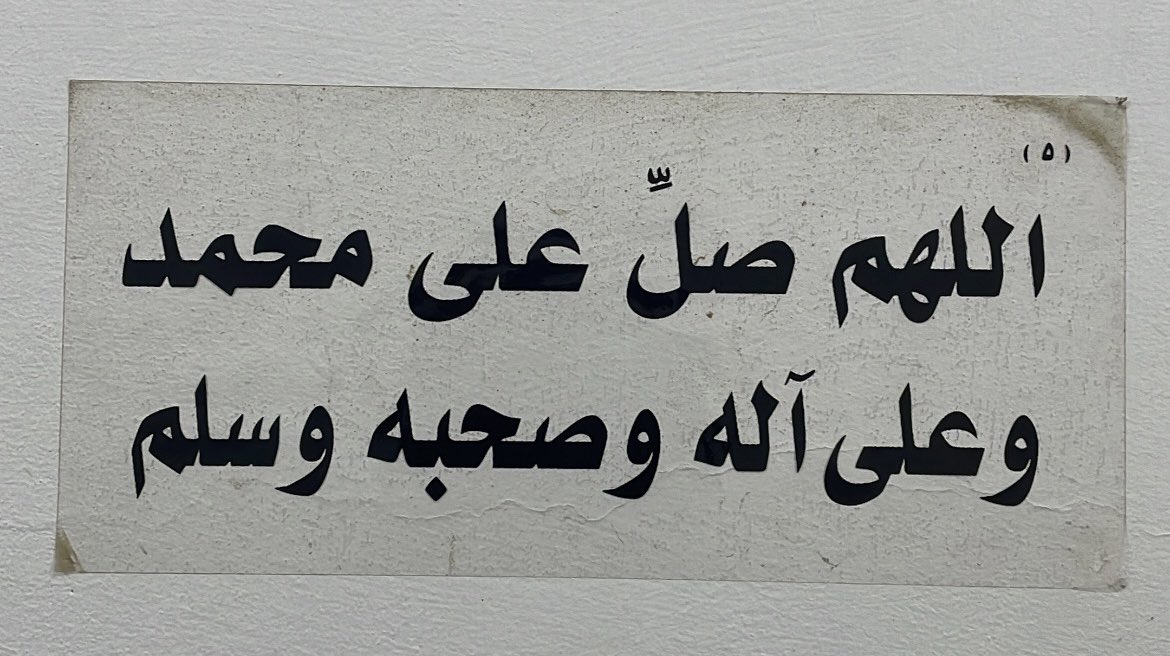 (٥)
اللهم صلِّ على محمد
وعلى آله وصحبه وسلم